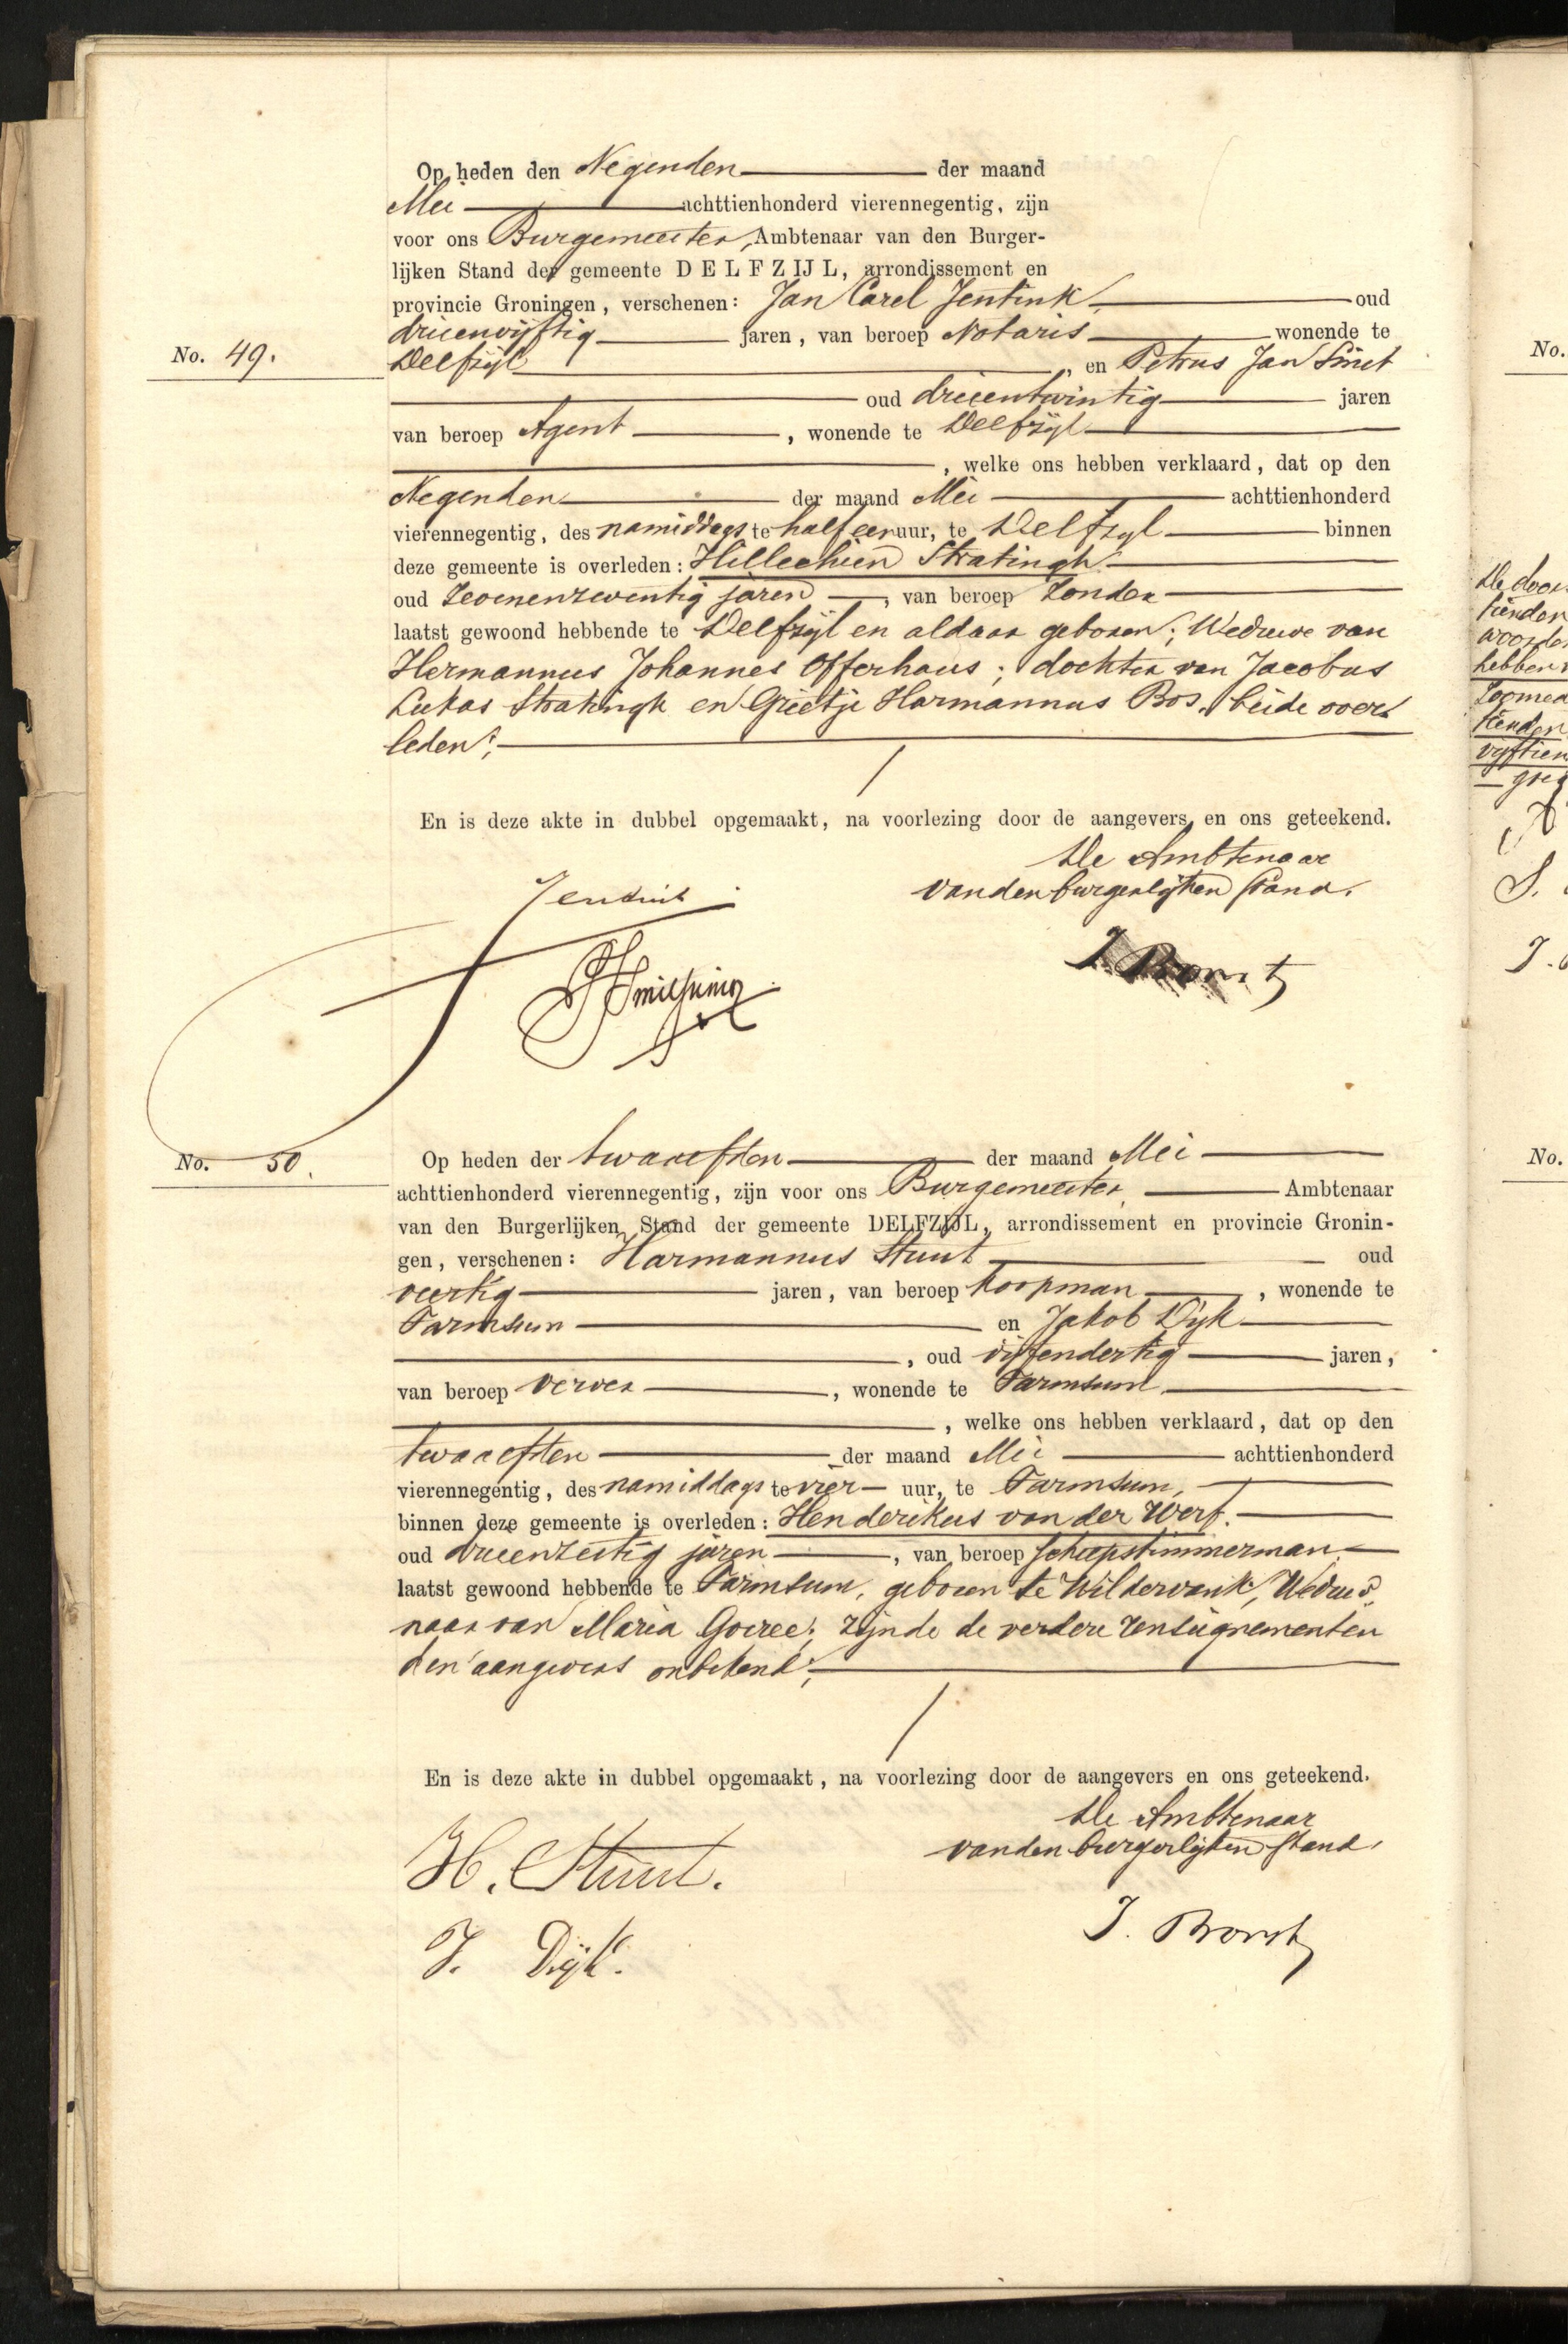 Op heden den Negenden der maand
Mei achttienhonderd vierennegentig, zijn
voor ons Burgemeester, Ambtenaar van den Burger-
lijken Stand der gemeente DELFZIJL, arrondissement en
provincie Groningen, verschenen: Jan Carel Jentink, oud
drieenvijftig jaren, van beroep Notaris wonende te
No. 49.
Delfzijl, en Petrus Jan Smit
oud drieentwintig jaren
van beroep Agent, wonende te Delfzijl
, welke ons hebben verklaard, dat op den
Negenden der maand Mei achttienhonderd
vierennegentig, des namiddags te half een uur, te Delfzijl binnen
deze gemeente is overleden: Hillechien Stratingh
oud Zevenenzeventig jaren, van beroep Zonder
laatst gewoond hebbende te Delfzijl en aldaar geboren; Weduwe van
Hermannus Johannes Offerhaus; dochter van Jacobus
Lukas Stratingh en Grietje Harmannus Bos, beide over-
leden;
En is deze akte in dubbel opgemaakt, na voorlezing door de aangevers en ons geteekend.
De Ambtenaar
van den burgerlijken stand.
Jentink
PJSmit junior
J. Borst
No. 50.
Op heden der twaalfden der maand Mei
achttienhonderd vierennegentig, zijn voor ons Burgemeester, Ambtenaar
van den Burgerlijken Stand der gemeente DELFZIJL, arrondissement en provincie Gronin-
gen, verschenen: Harmannus Stuut oud
veertig jaren, van beroep koopman, wonende te
Farmsum en Jakob Dijk
, oud vijfendertig jaren,
van beroep verver, wonende te Farmsum
, welke ons hebben verklaard, dat op den
twaalfden der maand Mei achttienhonderd
vierennegentig, des namiddags te vier uur, te Farmsum,
binnen deze gemeente is overleden: Henderikus van der Werf.
oud drieenzestig jaren, van beroep scheepstimmerman
laatst gewoond hebbende te Farmsum, geboren te Wildervank, Weduw-
naar van Maria Goeree; zijnde de verdere renseignementen
den aangevers onbekend;
En is deze akte in dubbel opgemaakt, na voorlezing door de aangevers en ons geteekend.
De Ambtenaar
van den burgerlijken stand.
H. Stuut.
J. Borst
J. Dijk.
No.
No.